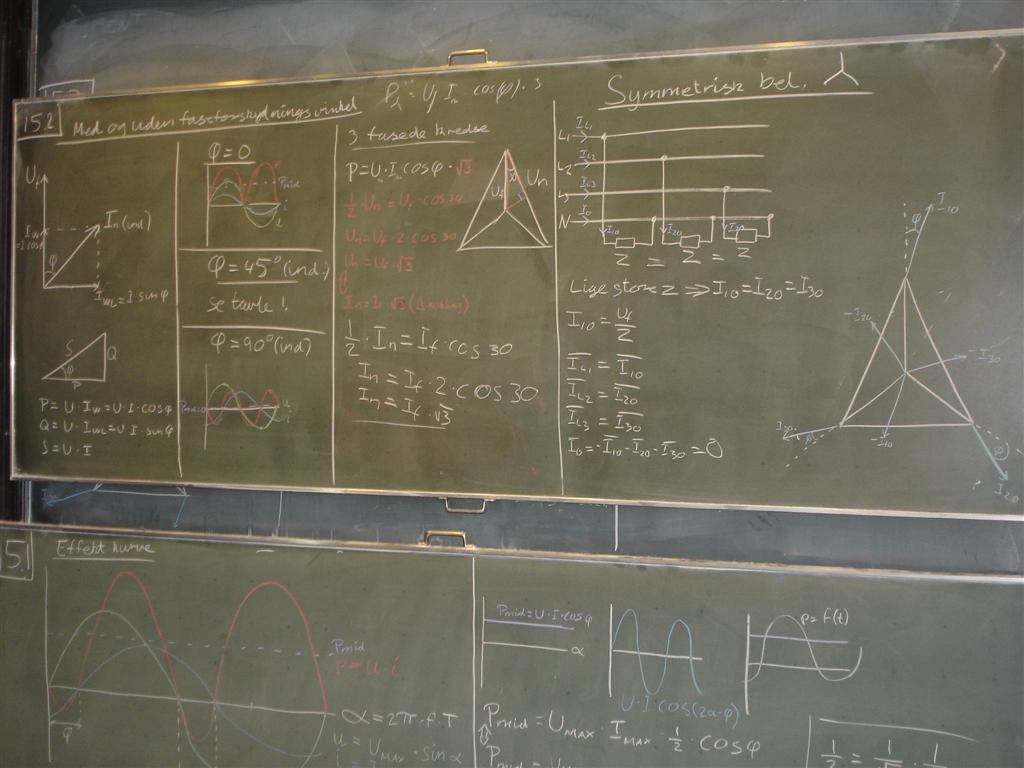 15.2
Med og uden faseforskydningsvinkel
P⅄ = Uf In cos(φ)·3
Symmetrisk bel. ⅄
Uf
In (ind)
φ
IWL = I sin φ
S
Q
φ
P
P = U · IW = U · I · cos φ
Q = U · IWL = U · I · sin φ
S = U · I
φ = 0
Pmid
i
φ = 45° (ind.)
se tavle !
φ = 90° (ind)
Pmid = 0
u
i
3 fasede kredse
P = U · I · cos φ · √3
½ · Un = Uf · cos 30
Un = Uf · 2 · cos 30
Un = Uf √3
½ · In = If · cos 30
In = If · 2 · cos 30
In = If · √3
Un
Uf
L1 IL1
L2 IL2
L3 IL3
N I0
I10 I20 I30
Z = Z = Z
Lige store Z ⇒ I10 = I20 = I30
I10 = Uf/Z
IL1 = I10
IL2 = I20
IL3 = I30
I0 = -I10 - I20 - I30 = 0
-I10
φ
-I20
-I30
I30
φ
-I10
φ
I20
5.1
Effekt kurve
Pmid
P = u · i
φ
α = 2π · f · T
u = UMAX · sin α
Pmid = U · I · cos φ
α
U · I · cos(2α-φ)
p = f(t)
Pmid = UMAX · IMAX · ½ · cos φ
½ = 1/√2 · 1